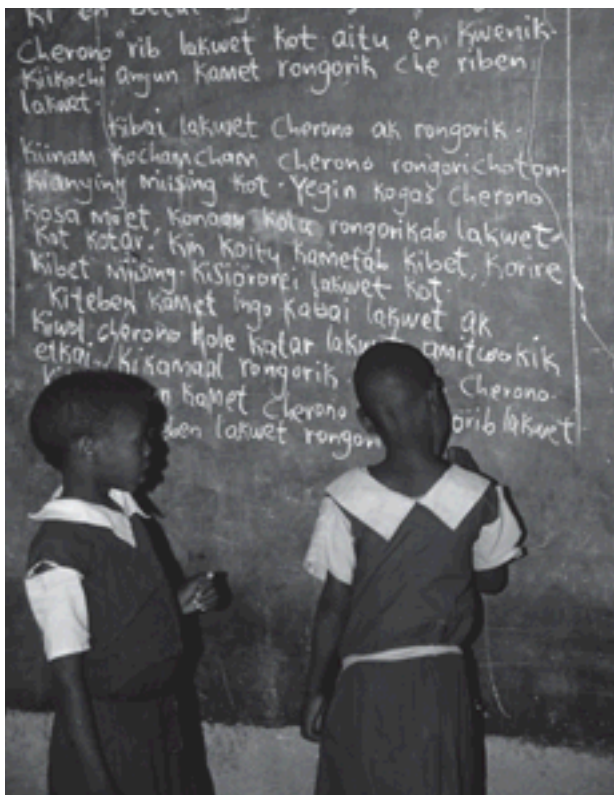 Ki en betut ag
Cherono rib lakwet kot aitu en kwenik.
Kiikochi amun kamet rongorik che riben
lakwet.
Kibai lakwet Cherono ak rongorik.
Kiinam kochamcham cherono rongorichoton.
Kianyiny miising kot. Yegin kogas Cherono
kosa moet, konaam kolu rongorikab lakwet
kot kotar. Kin koitu kametab kibet, korire
kibet miising. Kisiororei lakwet kot.
Kiteben kamet ingo kabai lakwet ak
Kiwol cherono kole katar lakwet amitwokik
etkai. Kikamaal rongorik Cherono.
kamet Cherono
ben lakwet rongor orib lakwet.